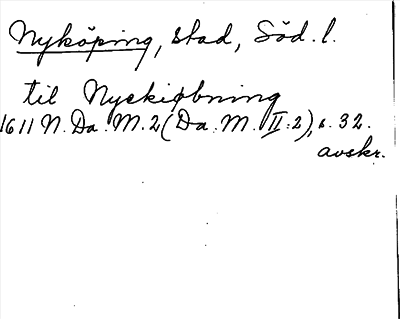 Nyköping, stad, Söd. l.
til Nyckiøbning
1611 N. Da. M. 2 (Da. M. II:2), s. 32.
avskr.